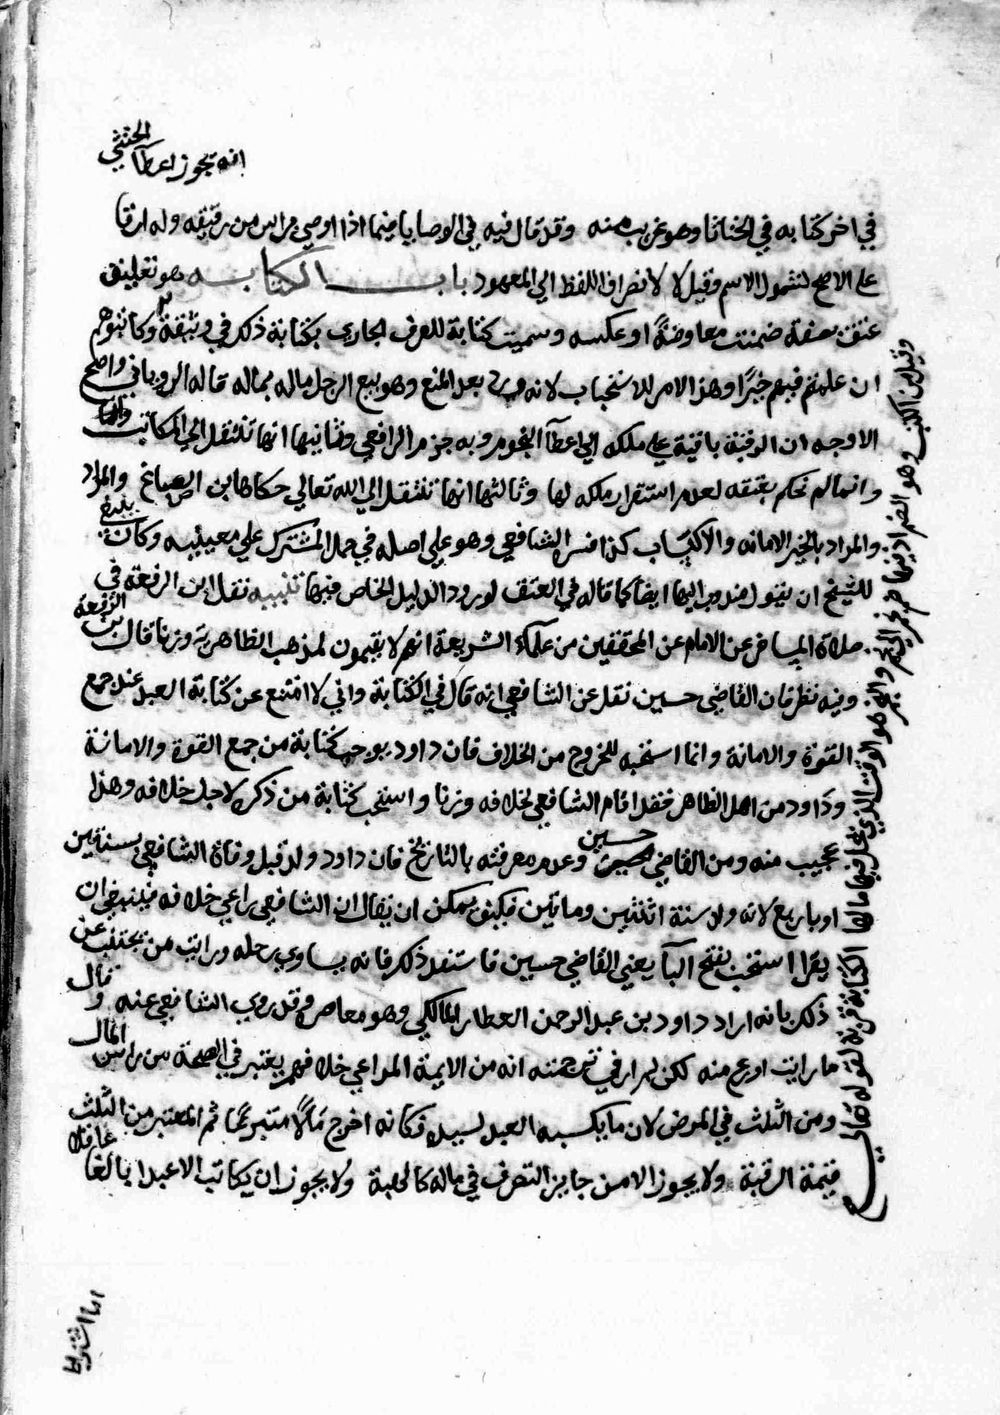 انه يجوز اعطا الخنثي
في اخر كتابه في الخناثا وهو غريب منه وقد قال فيه في الوصايا فيما اذا اوصي براس من رقيقه وله ارقا
علي الاصح لشمول الاسم وقيل لا لانصراف اللفظ الي المعهود باب الكتابه هو تعليق
عتق بصفة ضمنت معاوضة او عكسه وسميت كتابة للعرف الجاري بكتابة ذلك في وثيقة وكاتبوهم
ان علمتم فيهم خيرا وهذا الامر للاستحباب لانه ورد بعد المنع وهو بيع الرجل ماله بماله قاله الروياني واصح
الاوجه ان الرقبة باقية علي ملكه الي اعطآ النجوم وبه جزم الرافعي وثانيها انها تنتقل الي المكاتب
وانما لم نحكم بعتقه لعدم استقرار ملكه لها وثالثها انها تنتقل الي الله تعالي حكاها ابن الصباغ والمراد
والمراد بالخير الامانه والاكتساب كذا فسره الشافعي وهو علي اصله في حمل المشترك علي معنييه وكان ينبغي
للشيخ ان يقول مندوب اليها ايضا كما قاله في العتق لورود الدليل الخاص فيها تنبيه نقل ابن الرفعة في
صلاة المسافر عن الامام عن المحققين من علمآء الشريعة انهم لا يقيمون لمذهب الظاهرية وزنا قال ابن الرفعة
وفيه نظر فان القاضي حسين نقل عن الشافعي انه قال في الكتابة واني لا امتنع عن كتابة العبد عند جمع
القوة والامانة وانما استحبه للخروج من الخلاف فان داود يوجب كتابة من جمع القوة والامانة
وداود من اهل الظاهر فقد اقام الشافعي لخلافه وزنا واستحب كتابة من ذكر لاجل خلافه وهذا
عجيب منه ومن القاضي حسين وعدم معرفته بالتاريخ فان داود ولد قبل وفاة الشافعي بسنتين
او باربع لانه ولد سنة اثنتين وماتين فكيف يمكن ان يقال ان الشافعي راعي خلافه فينبغي ان
يقرا استحب بفتح البآ يعني القاضي حسين فاستفد ذلك فانه يساوي رحله ورايت من يجيب عن
ذلك بانه اراد داود بن عبد الرحمن العطار المالكي وهو معاصره وقد روي الشافعي عنه وقال
ما رايت اورع منه لكن لم ار في ترجمته انه من الايمة المراعي خلافهم يعتبر في الصحة من راس المال
ومن الثلث في المرض لان ما يكسبه العبد لسيده فكانه اخرج مالا متبرعا ثم المعتبر من الثلث
قيمة الرقبة ولا يجوز الا من جايز التصرف في ماله كالهبة ولا يجوز ان يكاتب الا عبدا بالغا عاقلا
وقيل من الكتب وهو الضم
الكتابة قربة لقوله تعالي
اما اشتراط